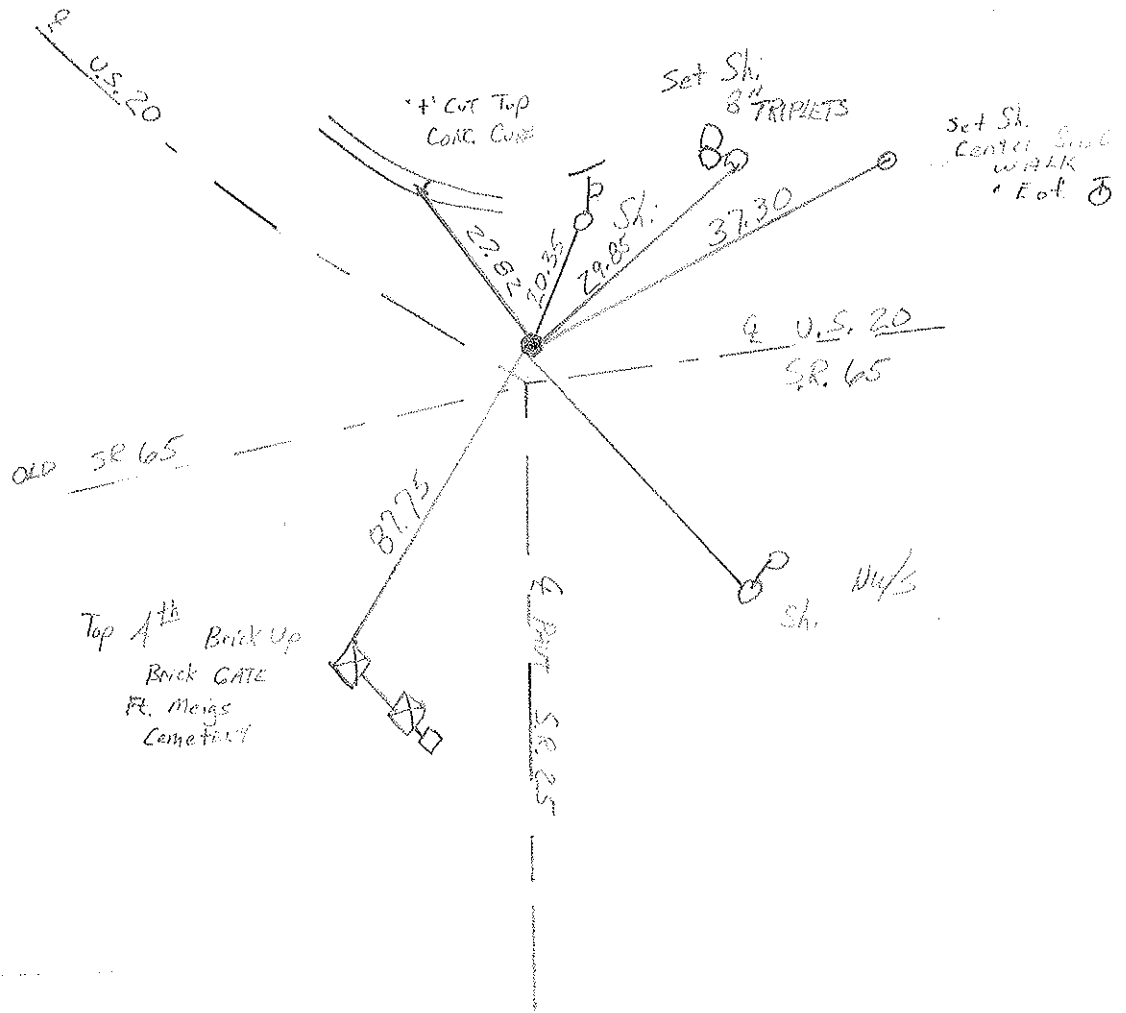 ℄
U.S. 20
"+" CUT TOP
CONC. CURB
Set Sh.
8" TRIPLETS
Set Sh.
Center
WALK
E of
27.82
20.35
Sh.
29.85
37.30
℄ U.S. 20
S.R. 65
OLD SR 65
87.75
Top 4th Brick Up
Brick GATE
Ft. Meigs
Cemetery
℄ PVMT S.R. 25
Sh.